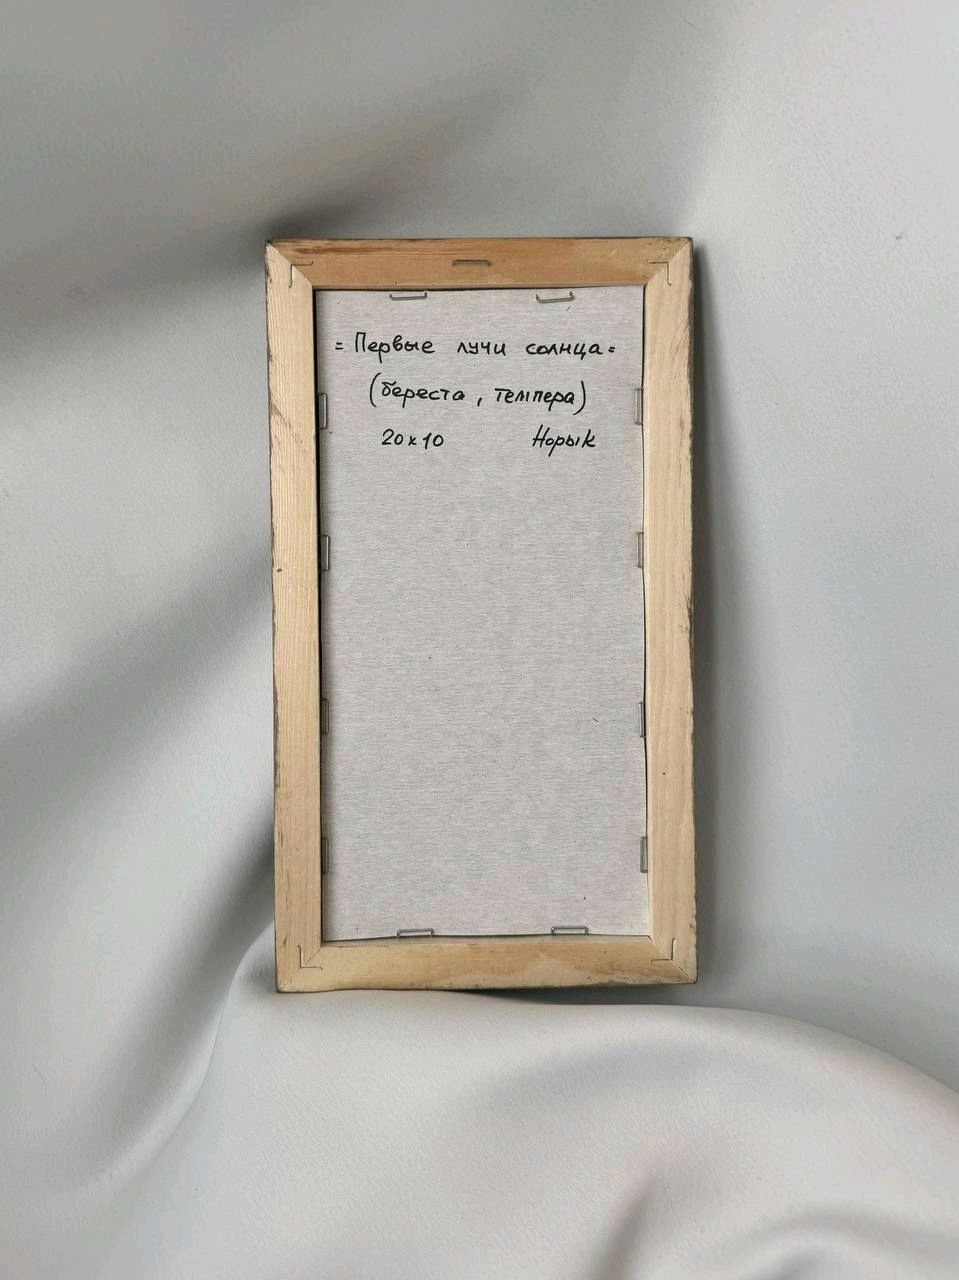 = Первые лучи солнца =
(береста, темпера)
20х10 Норык